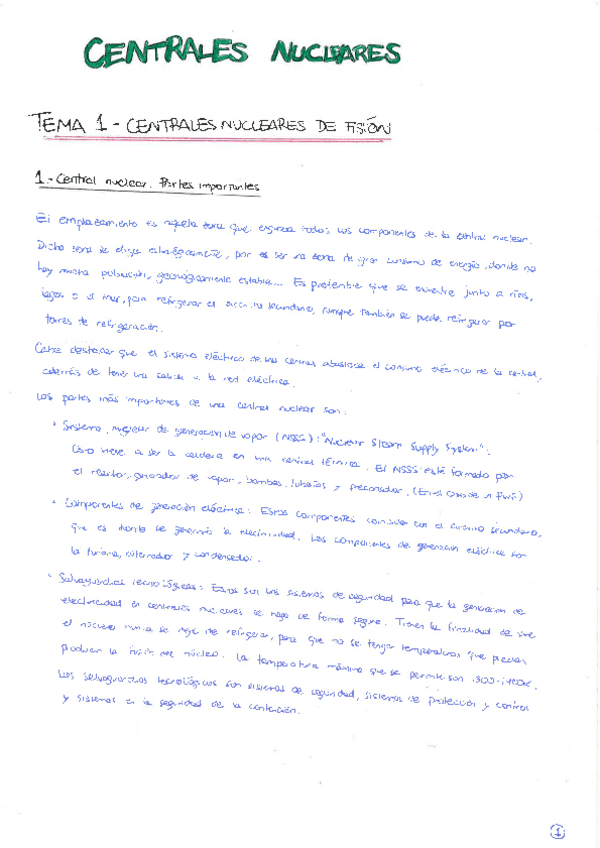 CENTRALES NUCLEARES
TEMA 1 - CENTRALES NUCLEARES DE FISIÓN
1.- Central nuclear. Partes importantes
El emplazamiento es aquella zona que engloba todos los componentes de la central nuclear.
Dicha zona se elige estratégicamente, por es ser una zona de gran consumo de energía, donde no
hay mucha población, geológicamente estable... Es preferible que se encuentre junto a ríos,
lagos o el mar, para refrigerar el circuito secundario, aunque también se puede refrigerar por
torres de refrigeración.
Cabe destacar que el sistema eléctrico de una central abastece el consumo eléctrico de la central,
además de tener una salida a la red eléctrica.
Las partes más importantes de una central nuclear son:
• Sistema nuclear de generación de vapor (NSSS): "Nuclear Steam Supply System":
Esto viene a ser la caldera en una central térmica. El NSSS está formado por
el reactor, generador de vapor, bombas, tuberías y presionador. (En el caso de un PWR)
• Componentes de generación eléctrica: Estos componentes coinciden con el circuito secundario,
que es donde se genera la electricidad. Los componentes de generación eléctrica son
la turbina, alternador y condensador.
• Salvaguardias tecnológicas: Estos son los sistemas de seguridad para que la generación de
electricidad en centrales nucleares se haga de forma segura. Tienen la finalidad de que
el núcleo nunca se deje de refrigerar, para que no se tengan temperaturas que puedan
producir la fusión del núcleo. La temperatura máxima que se permite son
Las salvaguardias tecnológicas son sistemas de seguridad, sistemas de protección y control
y sistemas en la seguridad de la contención.
1